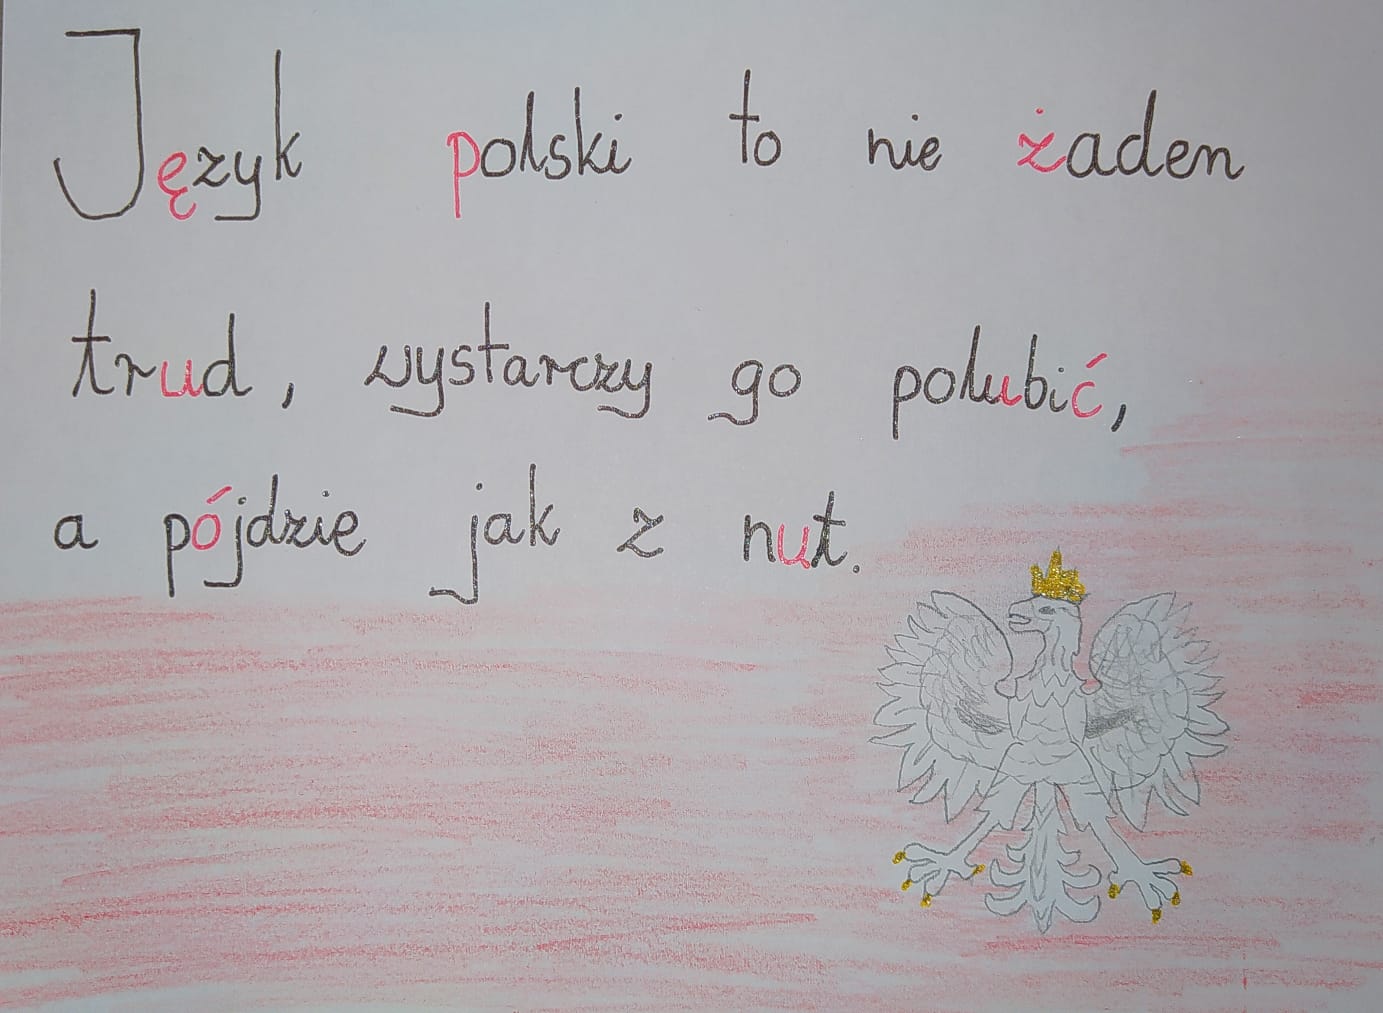 Język polski to nie żaden
trud, wystarczy go polubić,
a pójdzie jak z nut.